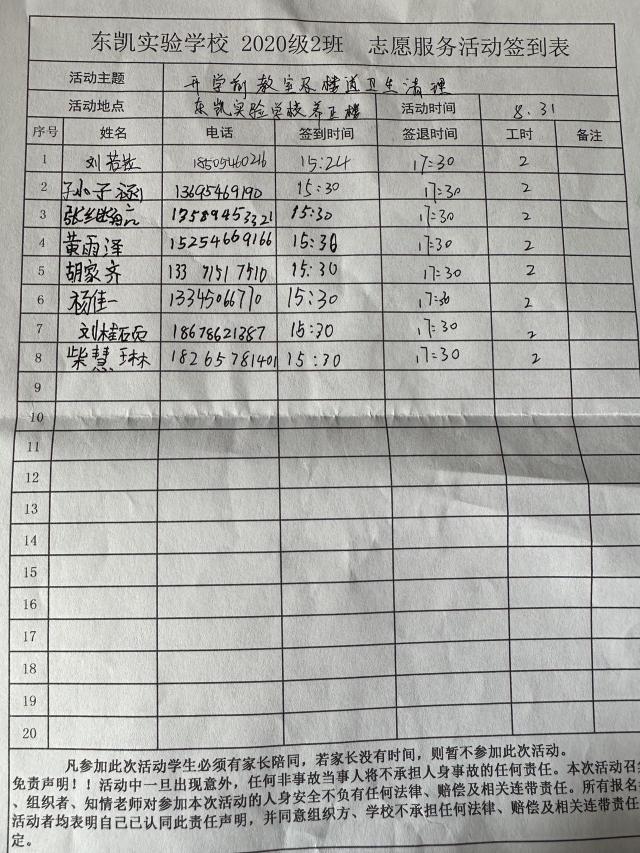 东凯实验学校 2020级2班 志愿服务活动签到表
活动主题 开学前教室及楼道卫生清理
活动地点 东凯实验学校养正楼 活动时间 8.31
序号 姓名 电话 签到时间 签退时间 工时 备注
1 刘若 18505460216 15:24 17:30 2
2 孙子涵 13695469190 15:30 17:30 2
3 张继 15:30 17:30 2
4 黄雨泽 15254669166 15:30 17:30 2
5 胡家齐 133 7151 7510 15:30 17:30 2
6 杨佳一 13345066770 15:30 17:30 2
7 刘桂 18678621387 15:30 17:30 2
8 柴慧琳 18265781401 15:30 17:30 2
9
10
11
12
13
14
15
16
17
18
19
20
凡参加此次活动学生必须有家长陪同，若家长没有时间，则暂不参加此次活动。
免责声明！！活动中一旦出现意外，任何非事故当事人将不承担人身事故的任何责任。本次活动召
、组织者、知情老师对参加本次活动的人身安全不负有任何法律、赔偿及相关连带责任。所有报名
活动者均表明自己已认同此责任声明，并同意组织方、学校不承担任何法律、赔偿及相关连带责任
定。